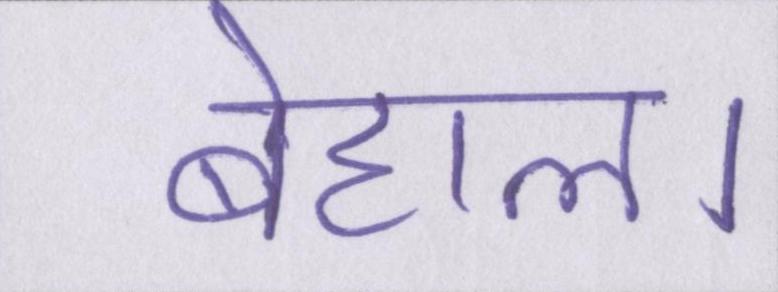 बेहाल।